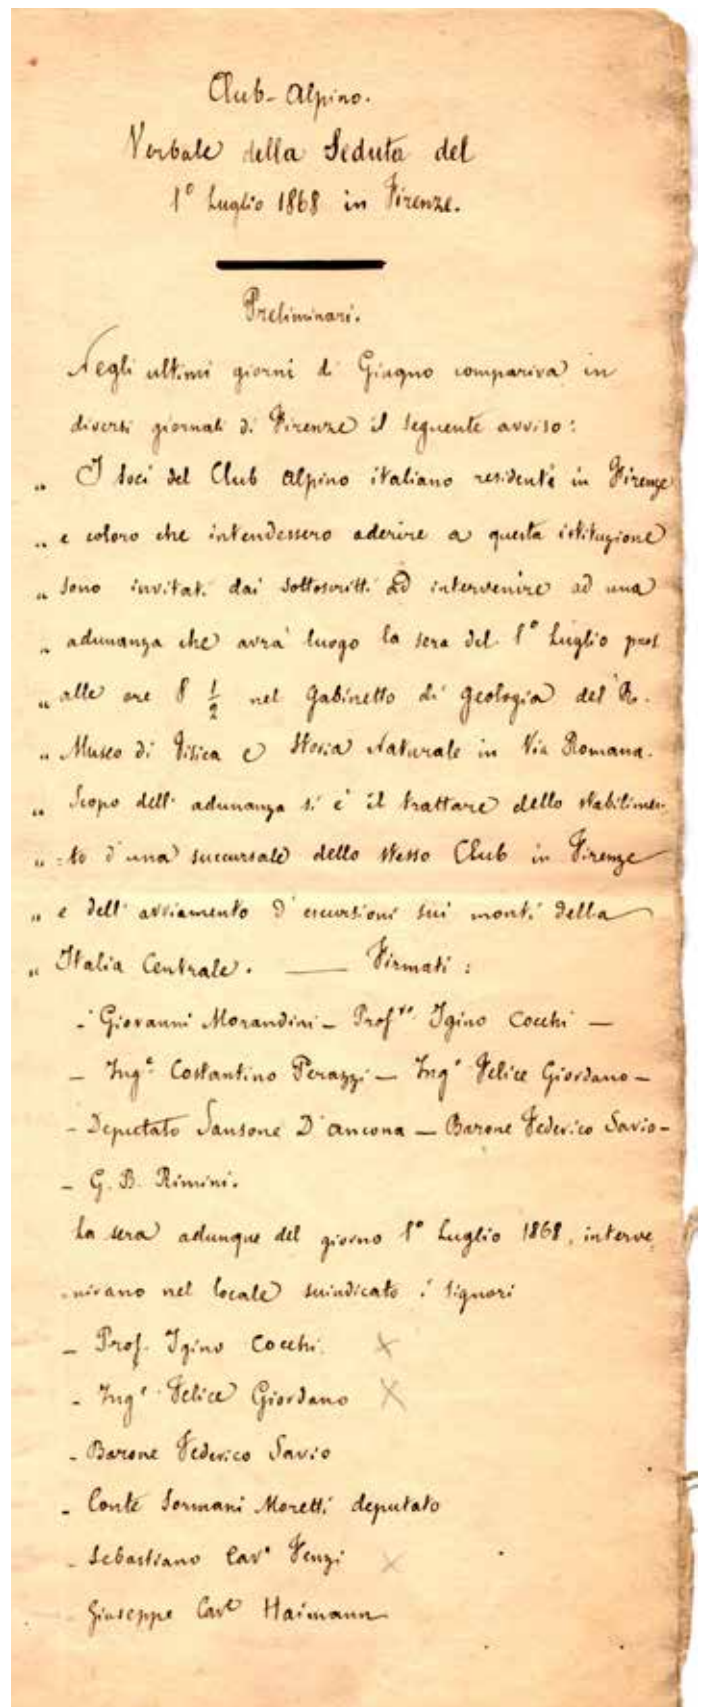 Club-Alpino.
Verbale della Seduta del
1° Luglio 1868 in Firenze.
Preliminari.
Negli ultimi giorni di Giugno compariva in
diversi giornali di Firenze il seguente avviso:
„ I soci del Club Alpino italiano residenti in Firenze
„ e coloro che intendessero aderire a questa istituzione
„ sono invitati dai sottoscritti ad intervenire ad una
„ adunanza che avrà luogo la sera del 1° Luglio pros
„ alle ore 8 1/2 nel Gabinetto di Geologia del R.
„ Museo di Fisica e Storia Naturale in Via Romana.
„ Scopo dell' adunanza si è il trattare dello stabilimen-
„ =to d'una succursale dello stesso Club in Firenze
„ e dell' avviamento d'escursioni sui monti della
„ Italia Centrale. — Firmati:
- Giovanni Morandini - Prof.re Igino Cocchi —
- Ing.e Costantino Perazzi — Ing.e Felice Giordano -
- Deputato Sansone D'Ancona — Barone Federico Savio -
- G. B. Rimini.
La sera adunque del giorno 1° Luglio 1868, interve
-nivano nel locale suindicato i Signori
- Prof. Igino Cocchi X
- Ing.e Felice Giordano X
- Barone Federico Savio
- Conte Sormani Moretti deputato
- Sebastiano Cav.e Fenzi X
- Giuseppe Cav.e Haimann